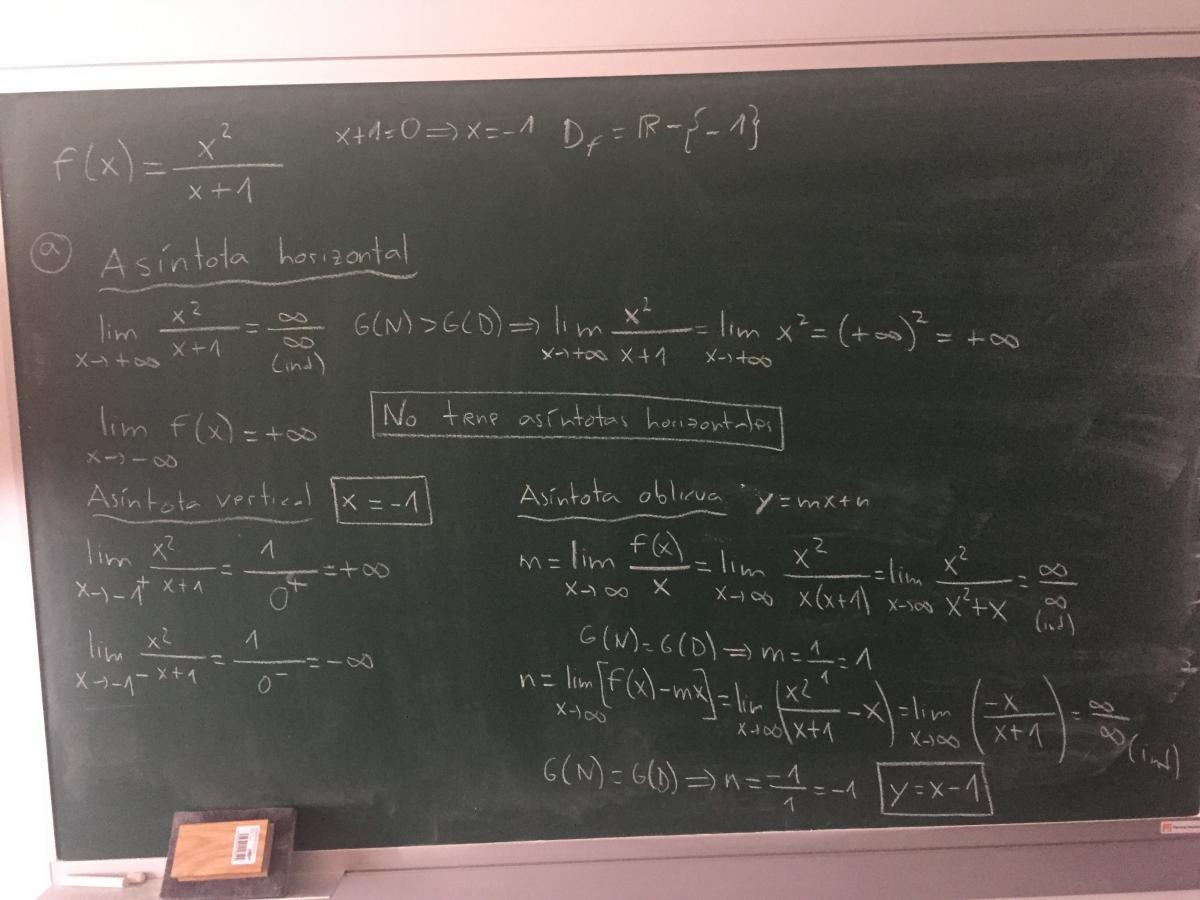 f(x) = x² / (x+1)    x+1=0 ⇒ x=-1    D_f = ℝ-{-1}
ⓐ Asíntota horizontal
lim x→+∞ x²/(x+1) = ∞/∞ (ind)  G(N)>G(D) ⇒ lim x→+∞ x²/(x+1) = lim x→+∞ x² = (+∞)² = +∞
lim x→-∞ f(x) = +∞
No tene asíntotas horizontales
Asíntota vertical  x=-1
lim x→-1⁺ x²/(x+1) = 1/0⁺ = +∞
lim x→-1⁻ x²/(x+1) = 1/0⁻ = -∞
Asíntota oblicua  y=mx+n
m = lim x→∞ f(x)/x = lim x→∞ x²/(x(x+1)) = lim x→∞ x²/(x²+x) = ∞/∞ (ind)
G(N)=G(D) ⇒ m = 1/1 = 1
n = lim x→∞ [f(x)-mx] = lim x→∞ (x²/(x+1) - x) = lim x→∞ (-x/(x+1)) = ∞/∞ (ind)
G(N)=G(D) ⇒ n = -1/1 = -1  y=x-1